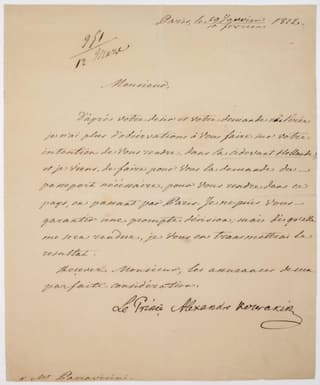 Paris, le 29 Janvier 1812.
10 février
951
12 Mars
Monsieur,
D'après votre désir et votre demande réitérée
je n'ai plus d'observations à vous faire sur votre
intention de vous rendre dans la cidevant Hollande,
et je viens de faire pour vous la demande du
passeport nécaissaire, pour vous rendre dans ce
pays, en passant par Paris. Je ne puis vous
garantir une prompte décision, mais dès qu'elle
me sera rendue, je vous en transmettrai le
résultat.
Recevez Monsieur, les assurances de ma
parfaite considération.
Le Prince Alexandre Kourakin
à Mr